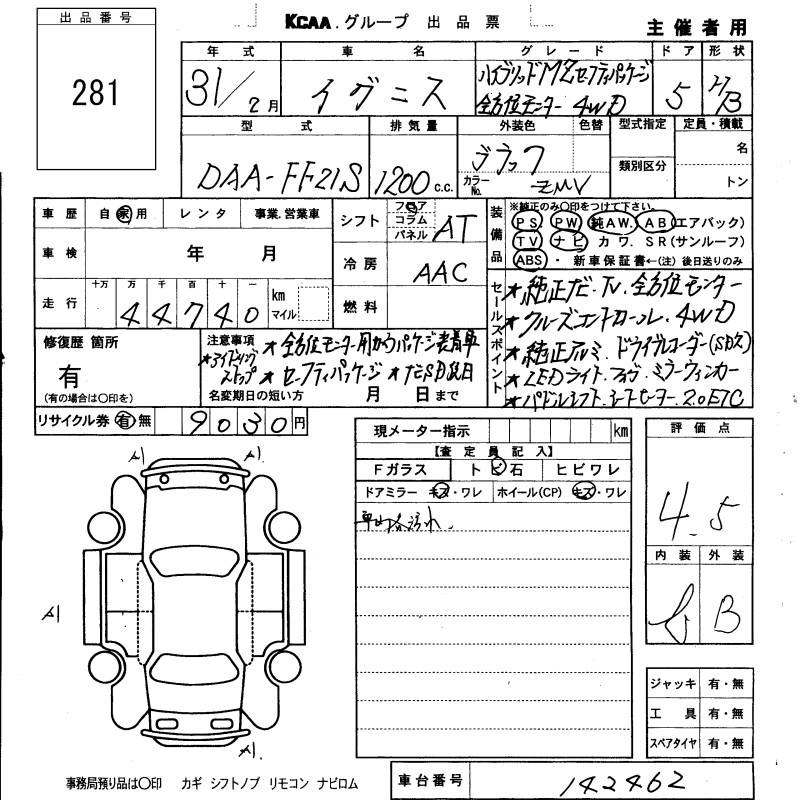 出品番号
281
KCAA.グループ 出品票
主催者用
年式 車名 グレード ドア 形状
31/2月 イグニス ハイブリッドMZセーフティパッケージ 5 H/B
全方位モニター 4WD
型式 排気量 外装色 色替 型式指定 定員・積載
DAA-FF21S 1200c.c. ブラック 名
類別区分
カラーNo. ZMV トン
車歴 自家用 レンタ 事業.営業車
シフト フロア コラム パネル AT
装備品 ※純正のみ○印をつけて下さい。
PS. PW 純AW. AB(エアバック)
TV ナビ カワ. SR(サンルーフ)
ABS ・ 新車保証書←(注)後日送りのみ
車検 年 月
冷房 AAC
走行 十万 万 千 百 十 一 km マイル
44740
燃料
セールスポイント
★純正ナビ.TV.全方位モニター
★クルーズコントロール.4WD
★純正アルミ.ドライブレコーダー(SDス)
★LEDライト.フォグ.ミラーウィンカー
★パドルシフト.シートヒーター.2.0ETC
修復歴 箇所
有
(有の場合は○印を)
注意事項
★アイドリングストップ
★全方位モニター用カメラパッケージ装着車
★セーフティパッケージ ★ナビSD後日
名変期日の短い方 月 日まで
リサイクル券 有 無 9030円
現メーター指示 km
評価点
4.5
【査定員記入】
Fガラス トビ石 ヒビワレ
ドアミラー キズ・ワレ ホイール(CP) キズ・ワレ
車内各汚れ。
内装 外装
B
A1 A1
A1
A1
ジャッキ 有・無
工具 有・無
スペアタイヤ 有・無
事務局預り品は○印 カギ シフトノブ リモコン ナビロム
車台番号 142462